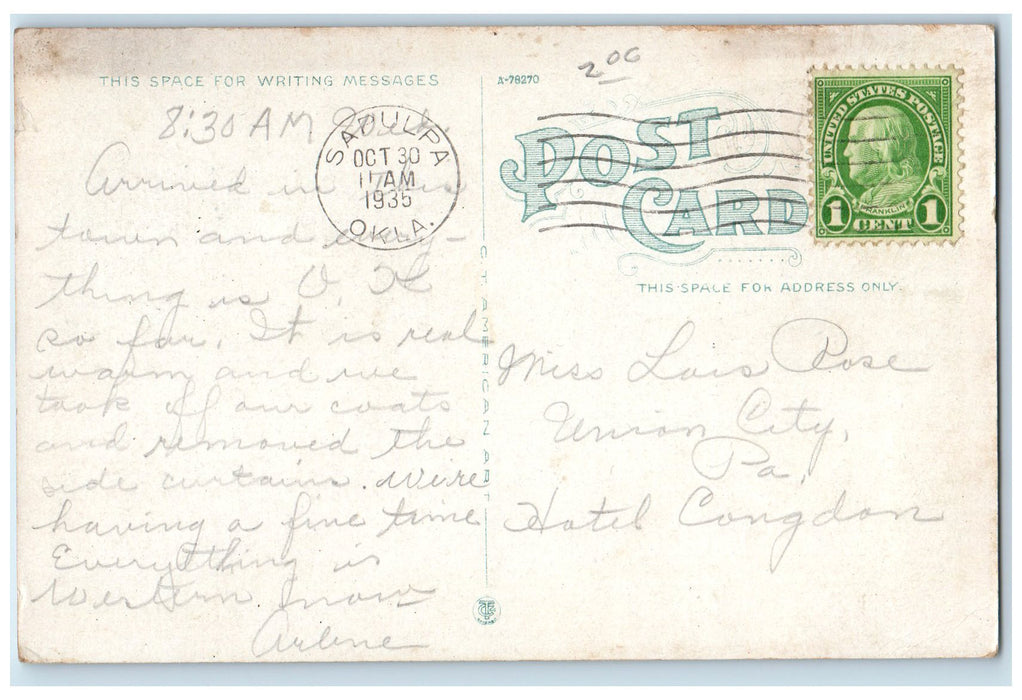 THIS SPACE FOR WRITING MESSAGES
8:30 AM
Arrived in this
town and every-
thing is O.K
so far. It is real
warm and we
took off our coats
and removed the
side curtains. We're
having a fine time
Everything is
Western now
Arlene
SAPULPA
OCT 30
11 AM
1935
OKLA.
C. T. AMERICAN ART
A-78270
2 00
POST CARD
UNITED STATES POSTAGE
FRANKLIN
1 CENT 1
THIS SPACE FOR ADDRESS ONLY.
Miss Lois Rose
Union City,
Pa.
Hotel Congdon